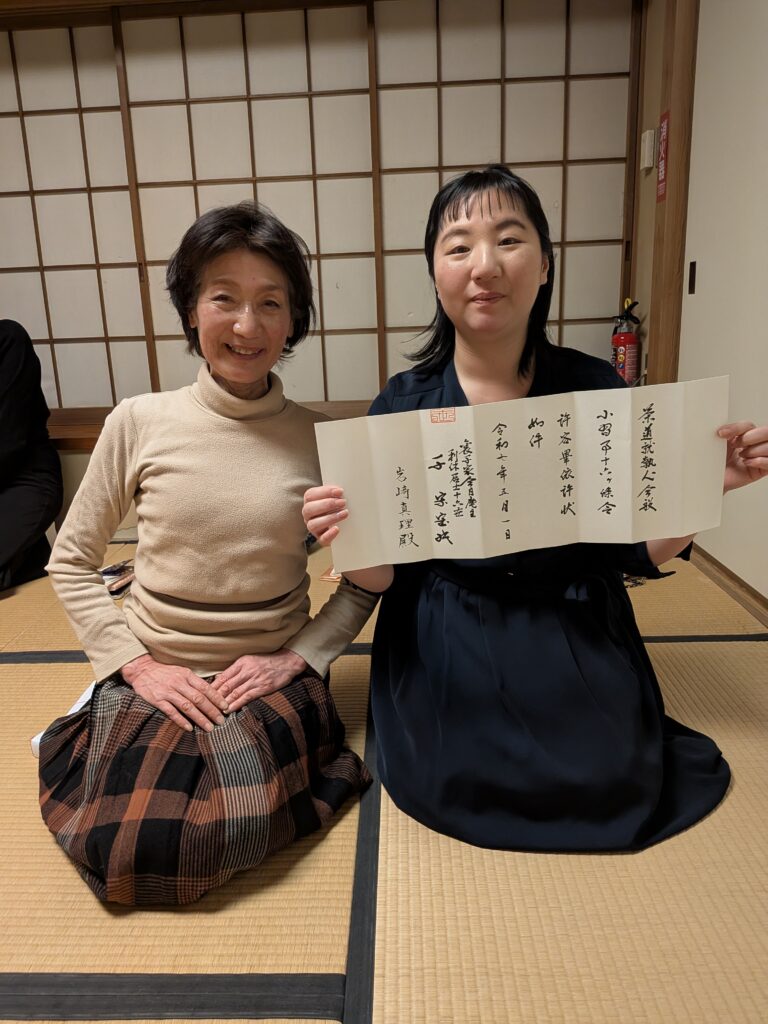 茶道就執心今般
小習事十六ヶ條令
許容畢依許状
如件
令和七年五月一日
裏千家今日庵主
利休居士十六世
千宗室
岩崎真理殿
消火器